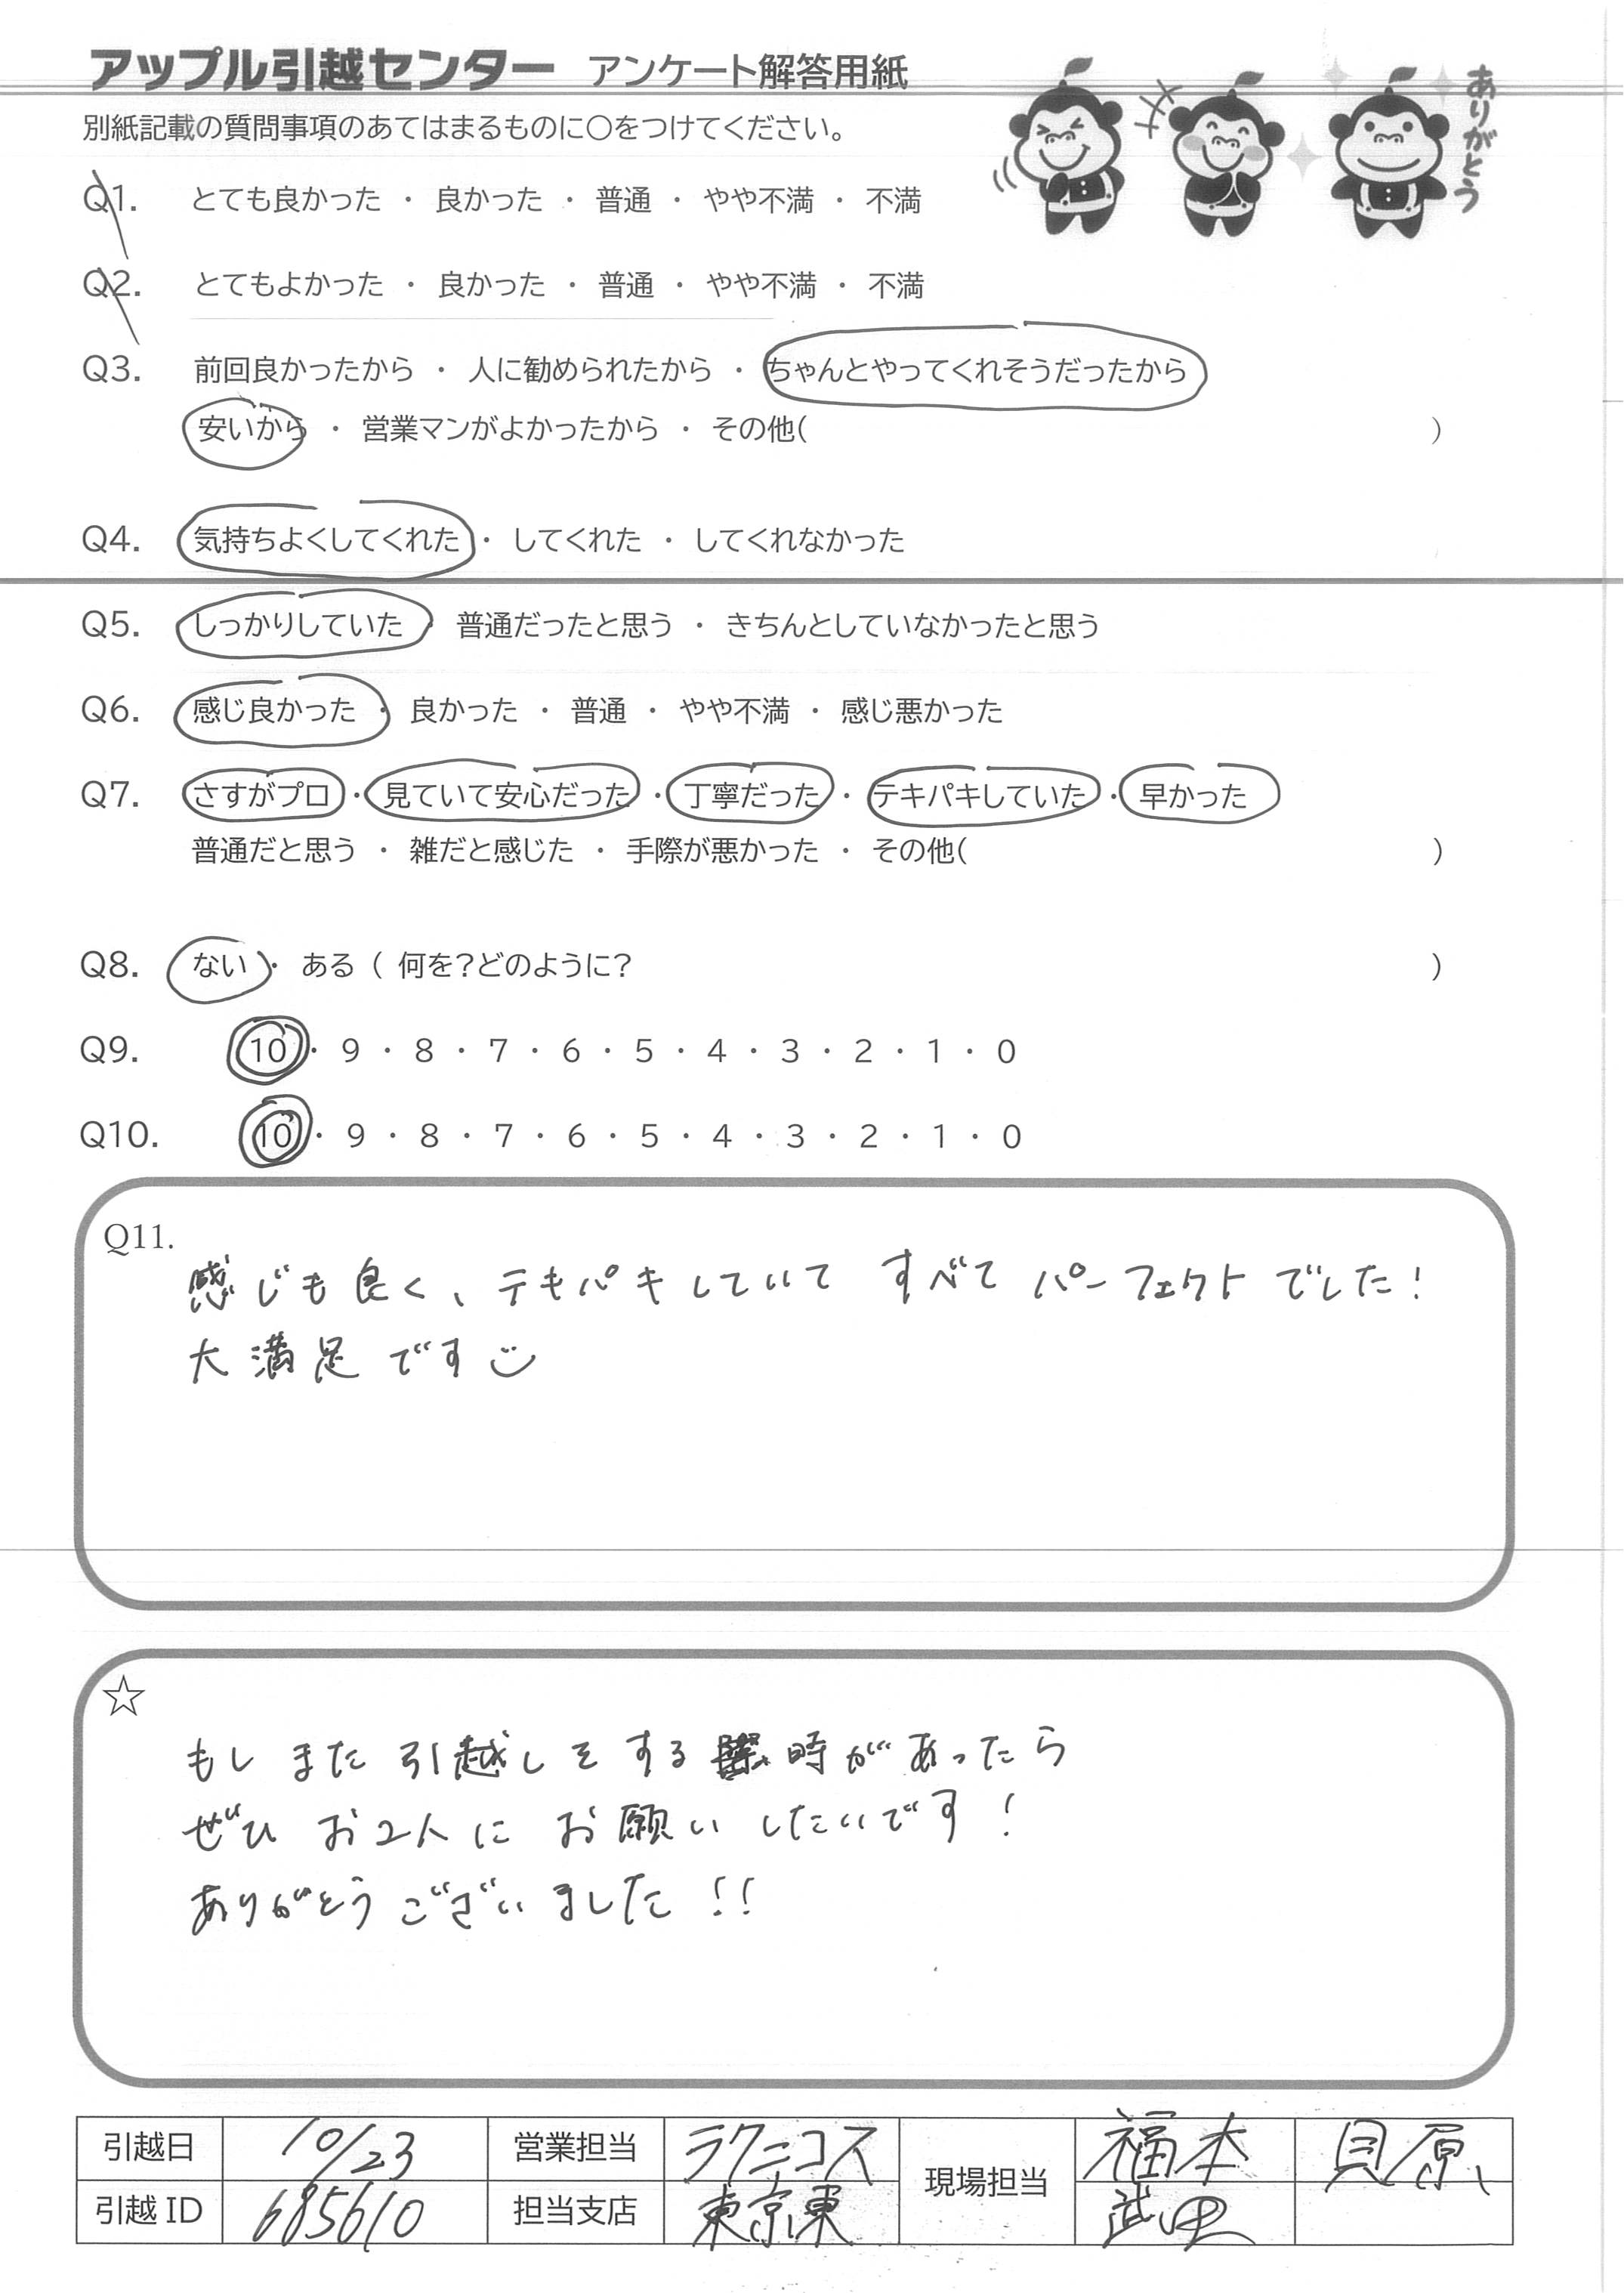 アップル引越センター アンケート解答用紙
ありがとう
別紙記載の質問事項のあてはまるものに○をつけてください。
Q1. とても良かった ・ 良かった ・ 普通 ・ やや不満 ・ 不満
Q2. とてもよかった ・ 良かった ・ 普通 ・ やや不満 ・ 不満
Q3. 前回良かったから ・ 人に勧められたから ・ ちゃんとやってくれそうだったから
安いから ・ 営業マンがよかったから ・ その他( )
Q4. 気持ちよくしてくれた ・ してくれた ・ してくれなかった
Q5. しっかりしていた ・ 普通だったと思う ・ きちんとしていなかったと思う
Q6. 感じ良かった ・ 良かった ・ 普通 ・ やや不満 ・ 感じ悪かった
Q7. さすがプロ ・ 見ていて安心だった ・ 丁寧だった ・ テキパキしていた ・ 早かった
普通だと思う ・ 雑だと感じた ・ 手際が悪かった ・ その他( )
Q8. ない ・ ある ( 何を?どのように? )
Q9. 10 ・ 9 ・ 8 ・ 7 ・ 6 ・ 5 ・ 4 ・ 3 ・ 2 ・ 1 ・ 0
Q10. 10 ・ 9 ・ 8 ・ 7 ・ 6 ・ 5 ・ 4 ・ 3 ・ 2 ・ 1 ・ 0
Q11.
感じも良く、テキパキしていて すべて パーフェクト でした!
大満足です
☆
もし また 引越しを する 時が あったら
ぜひ お2人に お願い したいです!
ありがとう ございました!!
引越日 10/23 営業担当 ラクニコス 現場担当 福本 貝原
引越 ID 685610 担当支店 東京東 武田